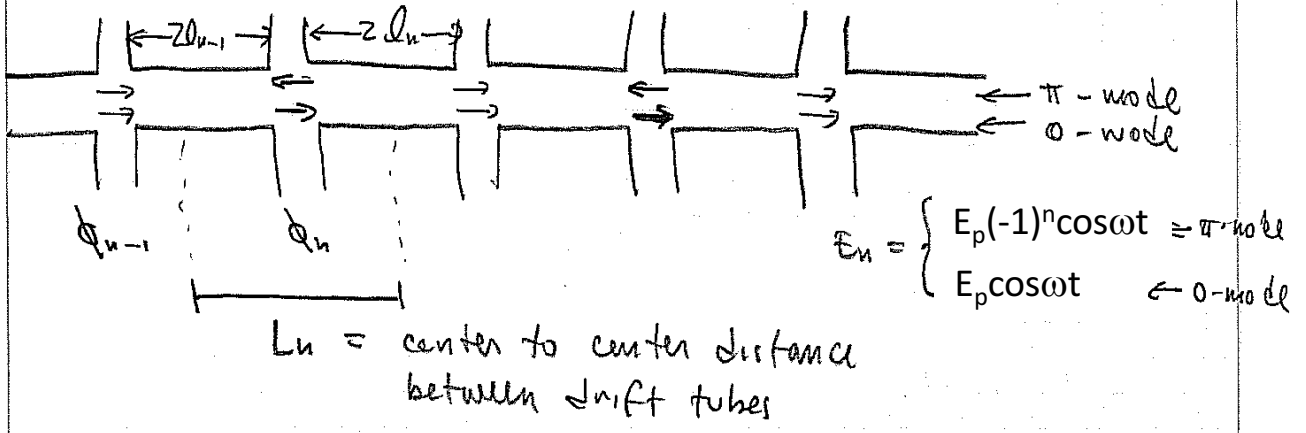 2l_{n-1} 2l_n
← π-mode
← 0-mode
ϕ_{n-1} ϕ_n
E_n = { E_p(-1)^n cosωt ⇐ π-mode
E_p cosωt ← 0-mode
L_n = center to center distance
between drift tubes